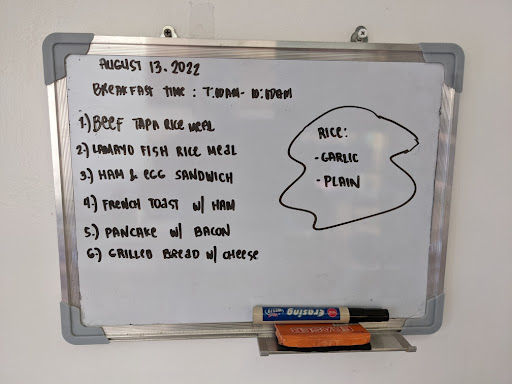 AUGUST 13. 2022
BREAKFAST TIME : 7:00AM - 10:00AM
1.) BEEF TAPA RICE MEAL
2.) LAMAYO FISH RICE MEAL
3.) HAM & EGG SANDWICH
4.) FRENCH TOAST W/ HAM
5.) PANCAKE W/ BACON
6.) GRILLED BREAD W/ CHEESE
RICE:
- GARLIC
- PLAIN
Erasing